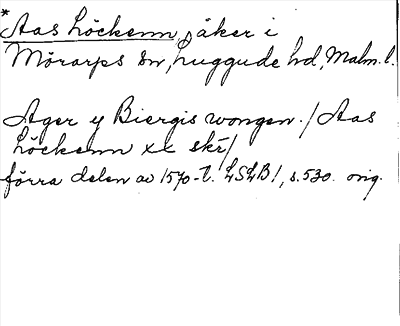 * Aas höckenn, åker i
Mörarps sn, Luggude hd, Malm. l.
Ager y Biergis wongen. / Aas
höckenn xx skr/
förra delen av 1570-t. LSLB1, s. 530. orig.